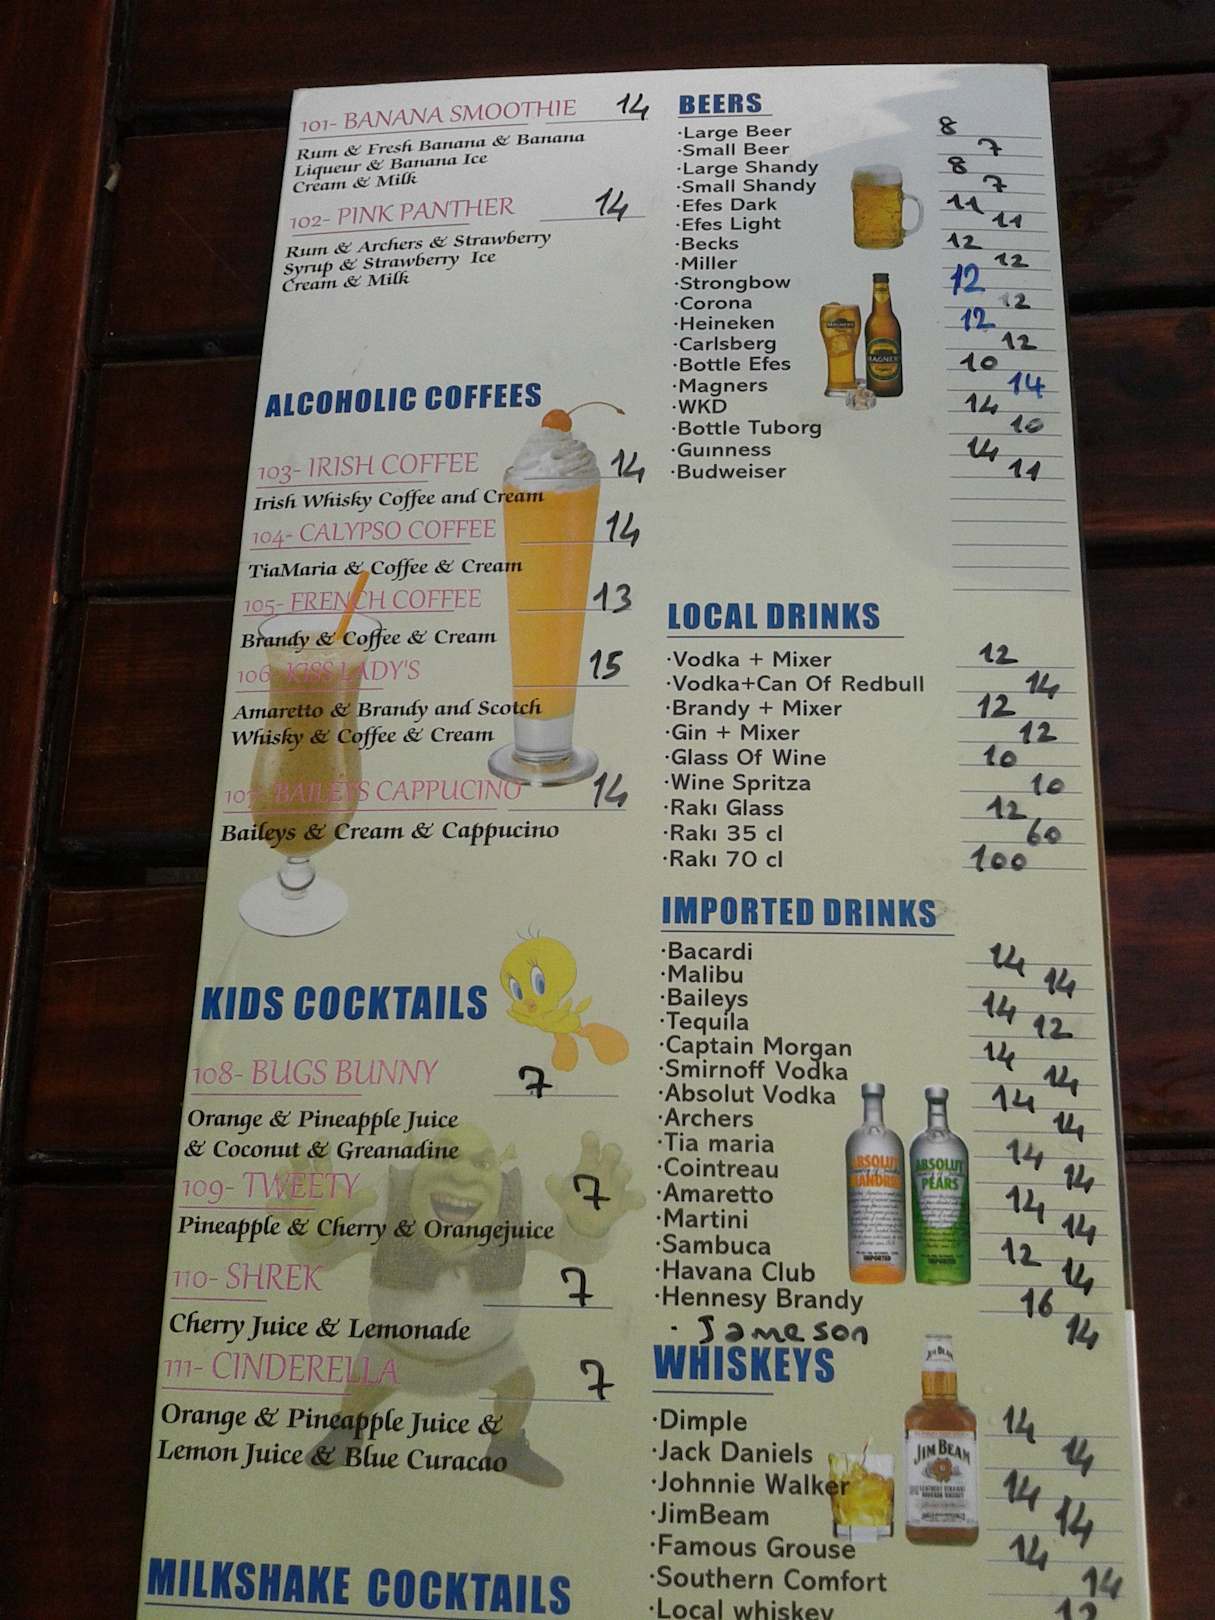 101- BANANA SMOOTHIE 14
Rum & Fresh Banana & Banana
Liqueur & Banana Ice
Cream & Milk
102- PINK PANTHER 14
Rum & Archers & Strawberry
Syrup & Strawberry Ice
Cream & Milk
ALCOHOLIC COFFEES
103- IRISH COFFEE 14
Irish Whisky Coffee and Cream
104- CALYPSO COFFEE 14
TiaMaria & Coffee & Cream
105- FRENCH COFFEE 13
Brandy & Coffee & Cream
106- KISS LADY'S 15
Amaretto & Brandy and Scotch
Whisky & Coffee & Cream
107- BAILEYS CAPPUCINO 14
Baileys & Cream & Cappucino
KIDS COCKTAILS
108- BUGS BUNNY 7
Orange & Pineapple Juice
& Coconut & Greanadine
109- TWEETY 7
Pineapple & Cherry & Orangejuice
110- SHREK 7
Cherry Juice & Lemonade
111- CINDERELLA 7
Orange & Pineapple Juice &
Lemon Juice & Blue Curacao
MILKSHAKE COCKTAILS
BEERS
·Large Beer 8
·Small Beer 7
·Large Shandy 8
·Small Shandy 7
·Efes Dark 11
·Efes Light 11
·Becks 12
·Miller 12
·Strongbow 12
·Corona 12
·Heineken 12
·Carlsberg 12
·Bottle Efes 10
·Magners 14
·WKD 14
·Bottle Tuborg 10
·Guınness 14
·Budweiser 11
MAGNERS
MAGNERS
LOCAL DRINKS
·Vodka + Mixer 12
·Vodka+Can Of Redbull 14
·Brandy + Mixer 12
·Gin + Mixer 12
·Glass Of Wine 10
·Wine Spritza 10
·Rakı Glass 12
·Rakı 35 cl 60
·Rakı 70 cl 100
IMPORTED DRINKS
·Bacardi 14
·Malibu 14
·Baileys 14
·Tequıla 12
·Captain Morgan 14
·Smirnoff Vodka 14
·Absolut Vodka 14
·Archers 14
·Tia maria 14
·Cointreau 14
·Amaretto 14
·Martini 14
·Sambuca 12
·Havana Club 14
·Hennesy Brandy 16
· Jameson 14
ABSOLUT
MANDRIN
IMPORTED
ABSOLUT
PEARS
IMPORTED
WHISKEYS
·Dimple 14
·Jack Daniels 14
·Johnnie Walker 14
·JimBeam 14
·Famous Grouse 14
·Southern Comfort 14
·Local whiskey 12
JIM BEAM